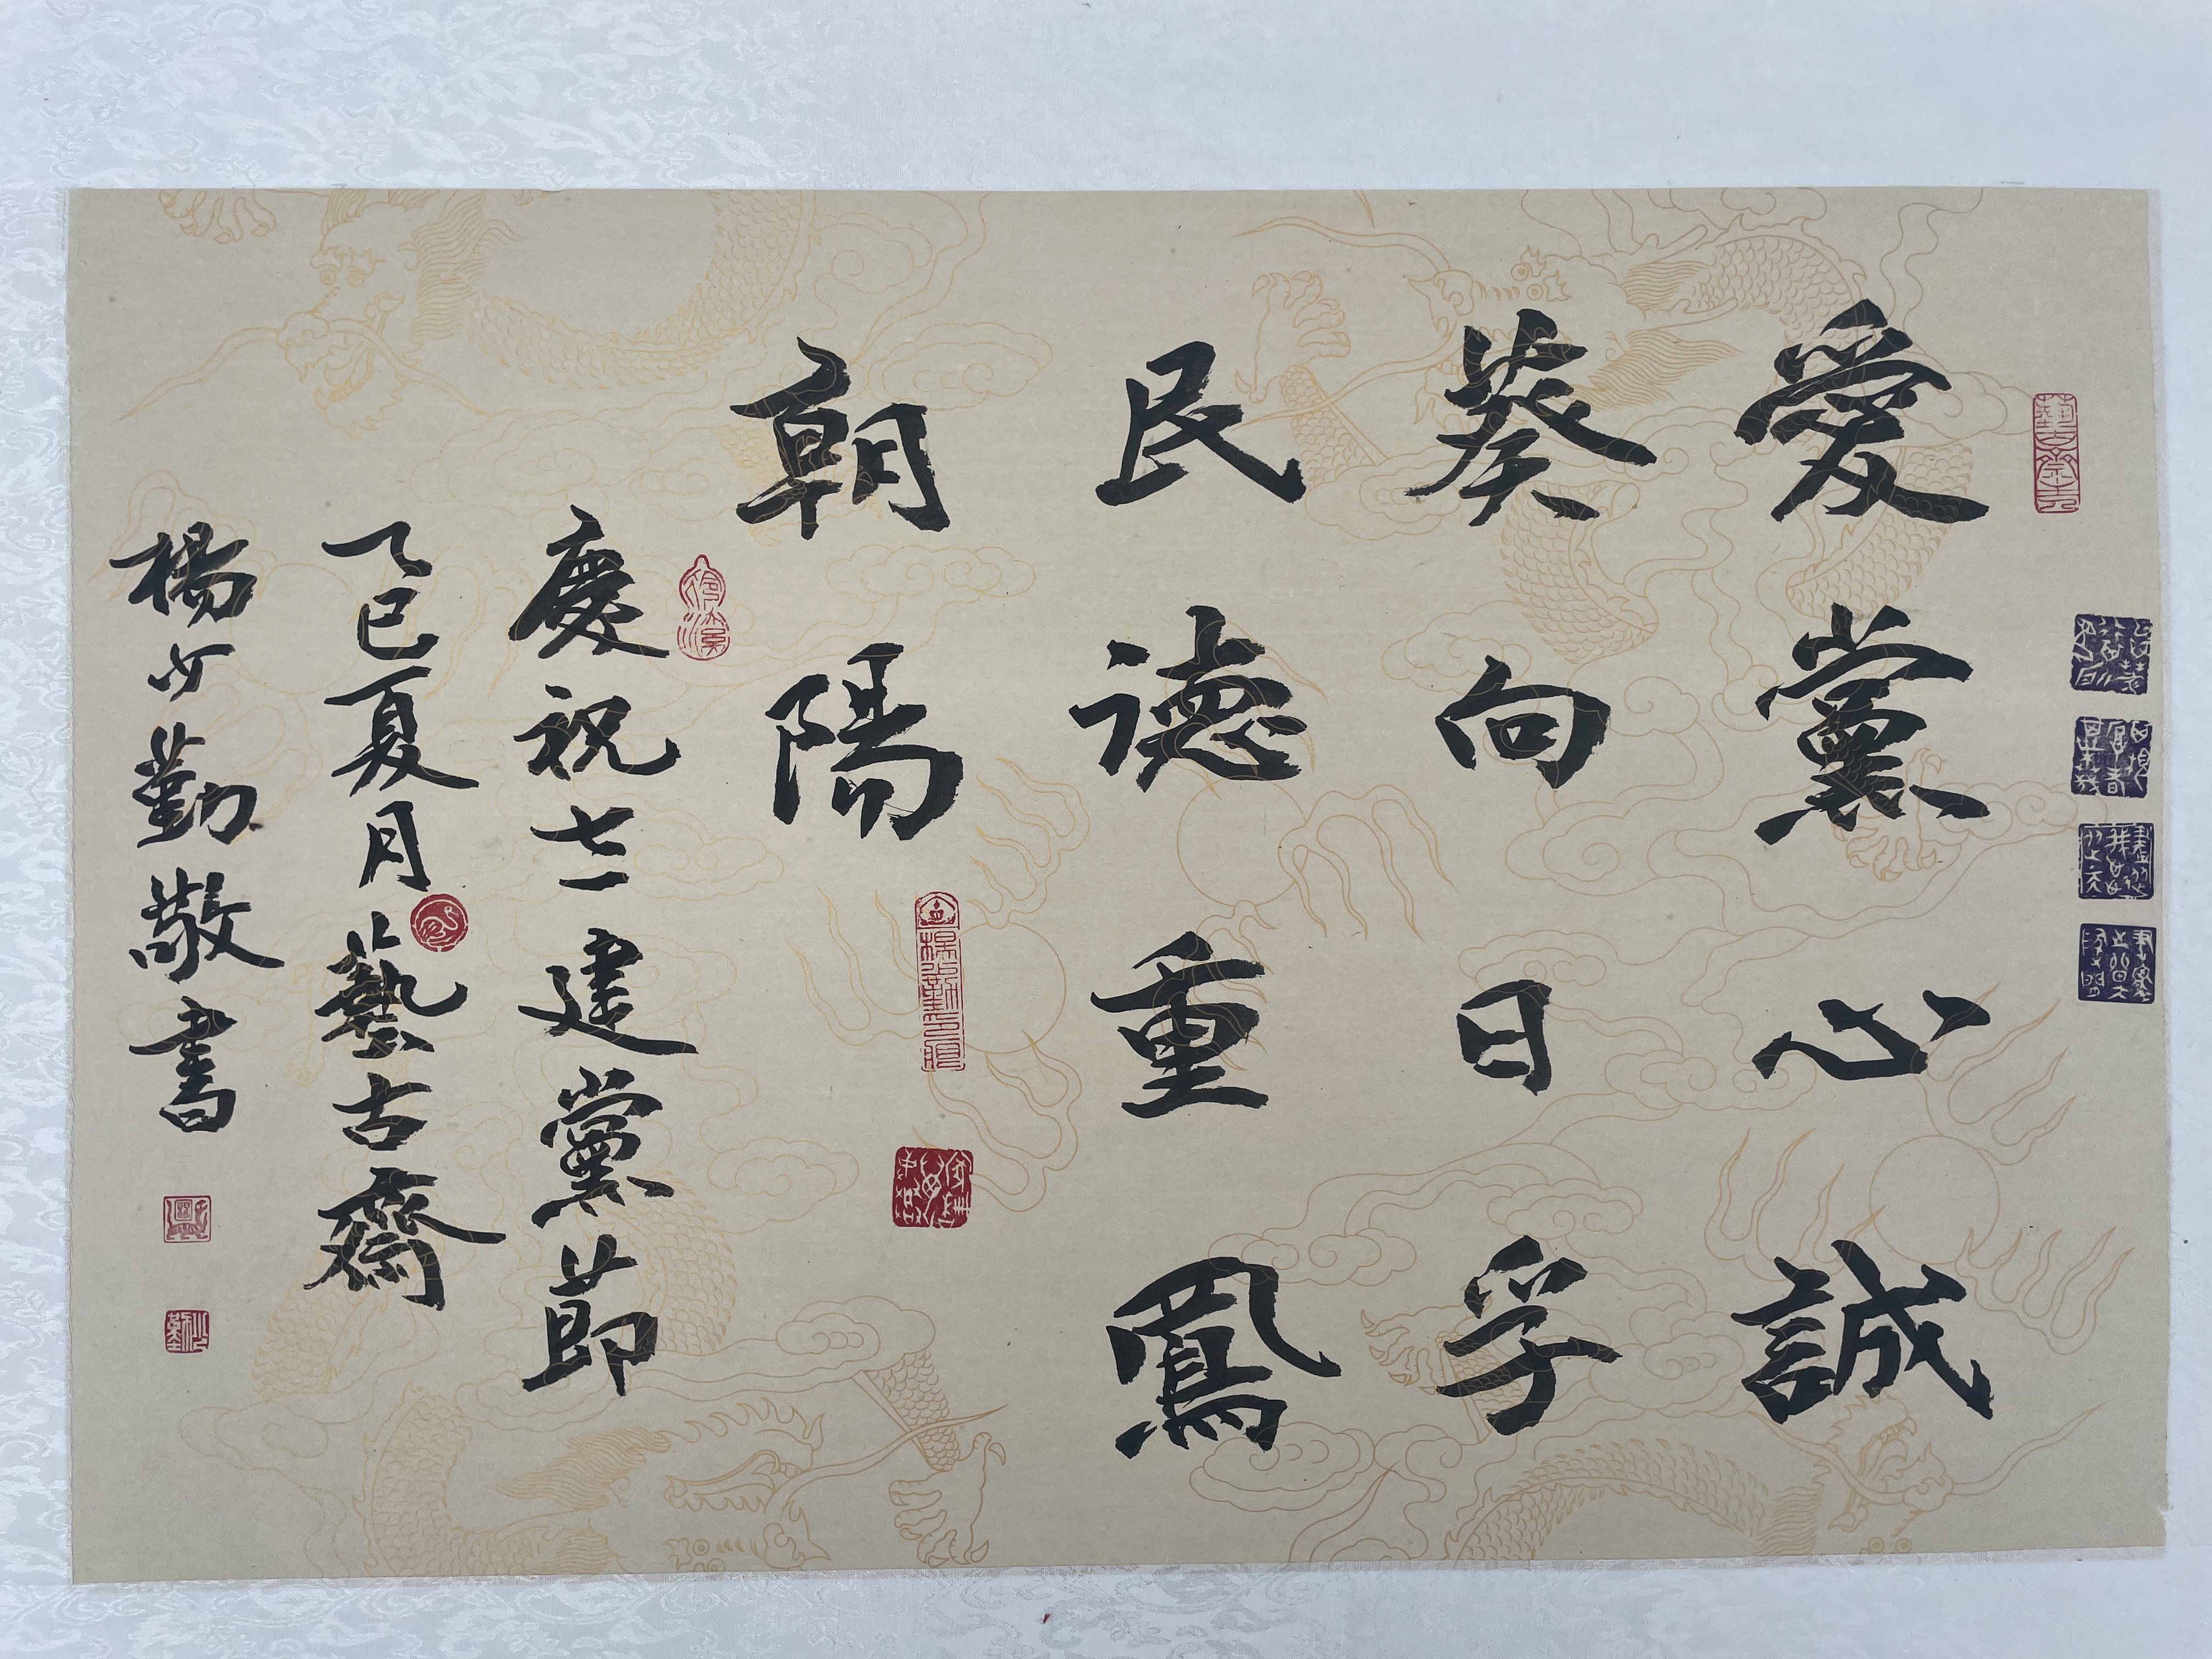 愛黨心誠
葵向日孚
民德重鳳
朝陽
慶祝七一建黨節
乙巳夏月藝古齋
楊少勤敬書